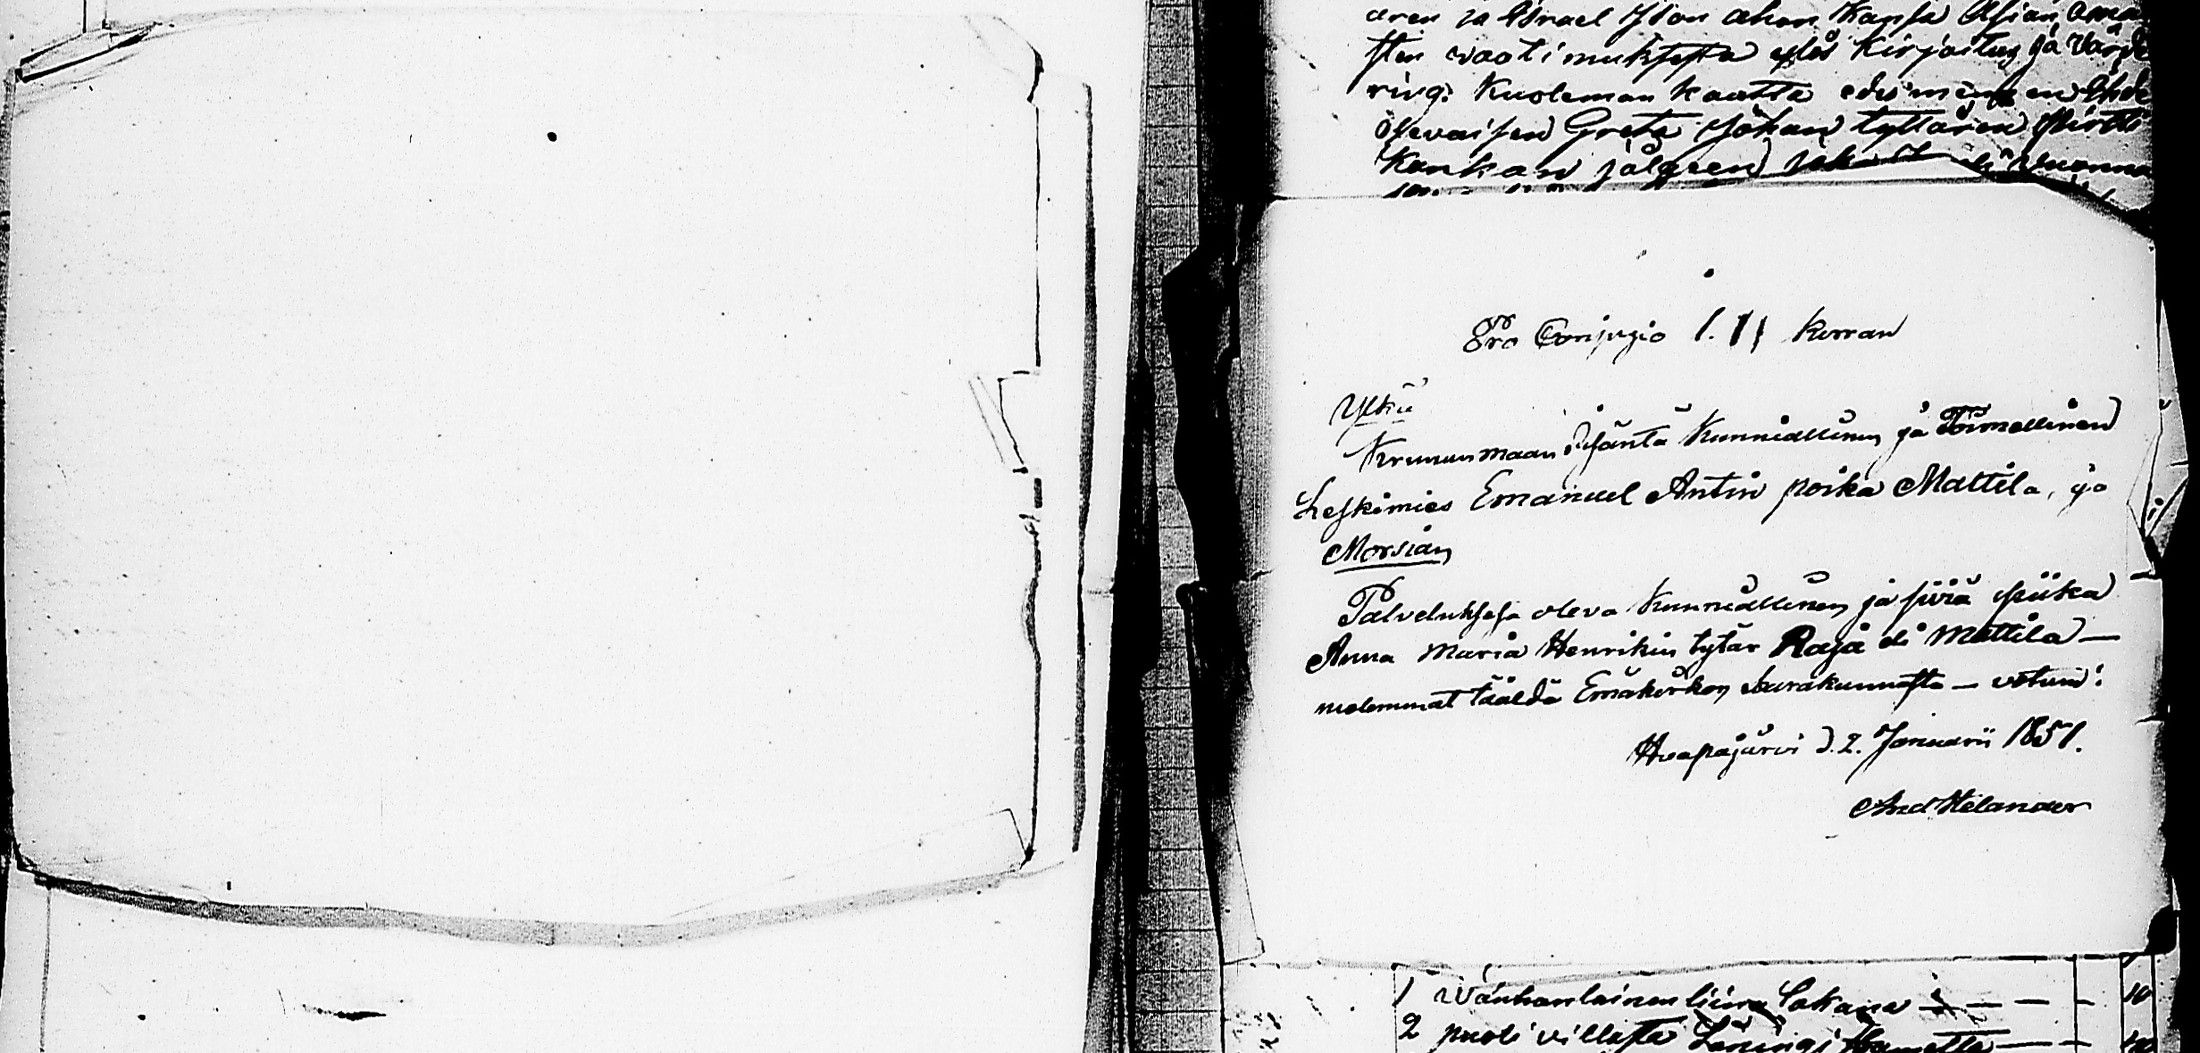 aren ja Israel Ison ahon Kansa Asian oma
sten vaatimuksesta ylös Kirjoitus ja Värde
ring. Kuoleman kautta edesmennen Ehde
olevaisen Greta Johan tyttären
Kankan jälgeen vuonna
Pro Conjugio 1. Kerran
Ylkä
Krunun maan Isäntä Kunniallinen ja Toimellinen
Leskimies Emanuel Antin poika Mattila, ja
Morsian
Palveluksesa oleva Kunniallinen ja siviä piika
Anna Maria Henrikin tytär Raja eli Mattila —
molemmat tääldä Emäkirkon seurakunnasta —
Haapajärvi d. 2. Januarii 1851.
And Helander
1 Wanhanlainen liina Lakana — — —
2 puoli villasta Läningi Hametta — —